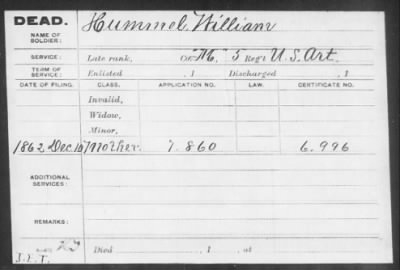 DEAD. Hummel, William
NAME OF SOLDIER:
SERVICE: Late rank, Co. "M," 5 Reg't U.S. Art.
TERM OF SERVICE: Enlisted , 1 Discharged , 1
DATE OF FILING. CLASS. APPLICATION NO. LAW. CERTIFICATE NO.
Invalid,
Widow,
Minor,
1862 Dec. 10 Mother. 7.860 6.996
ADDITIONAL SERVICES:
REMARKS:
Died , 1 , at